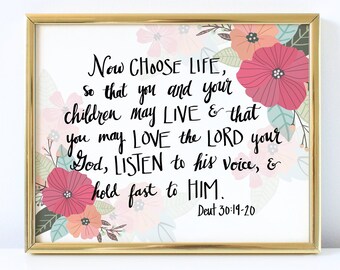 Now CHOOSE LIFE,
so that you and your
children may LIVE & that
you may LOVE the LORD your
God, LISTEN to his voice, &
hold fast to HIM.
Deut 30:19-20